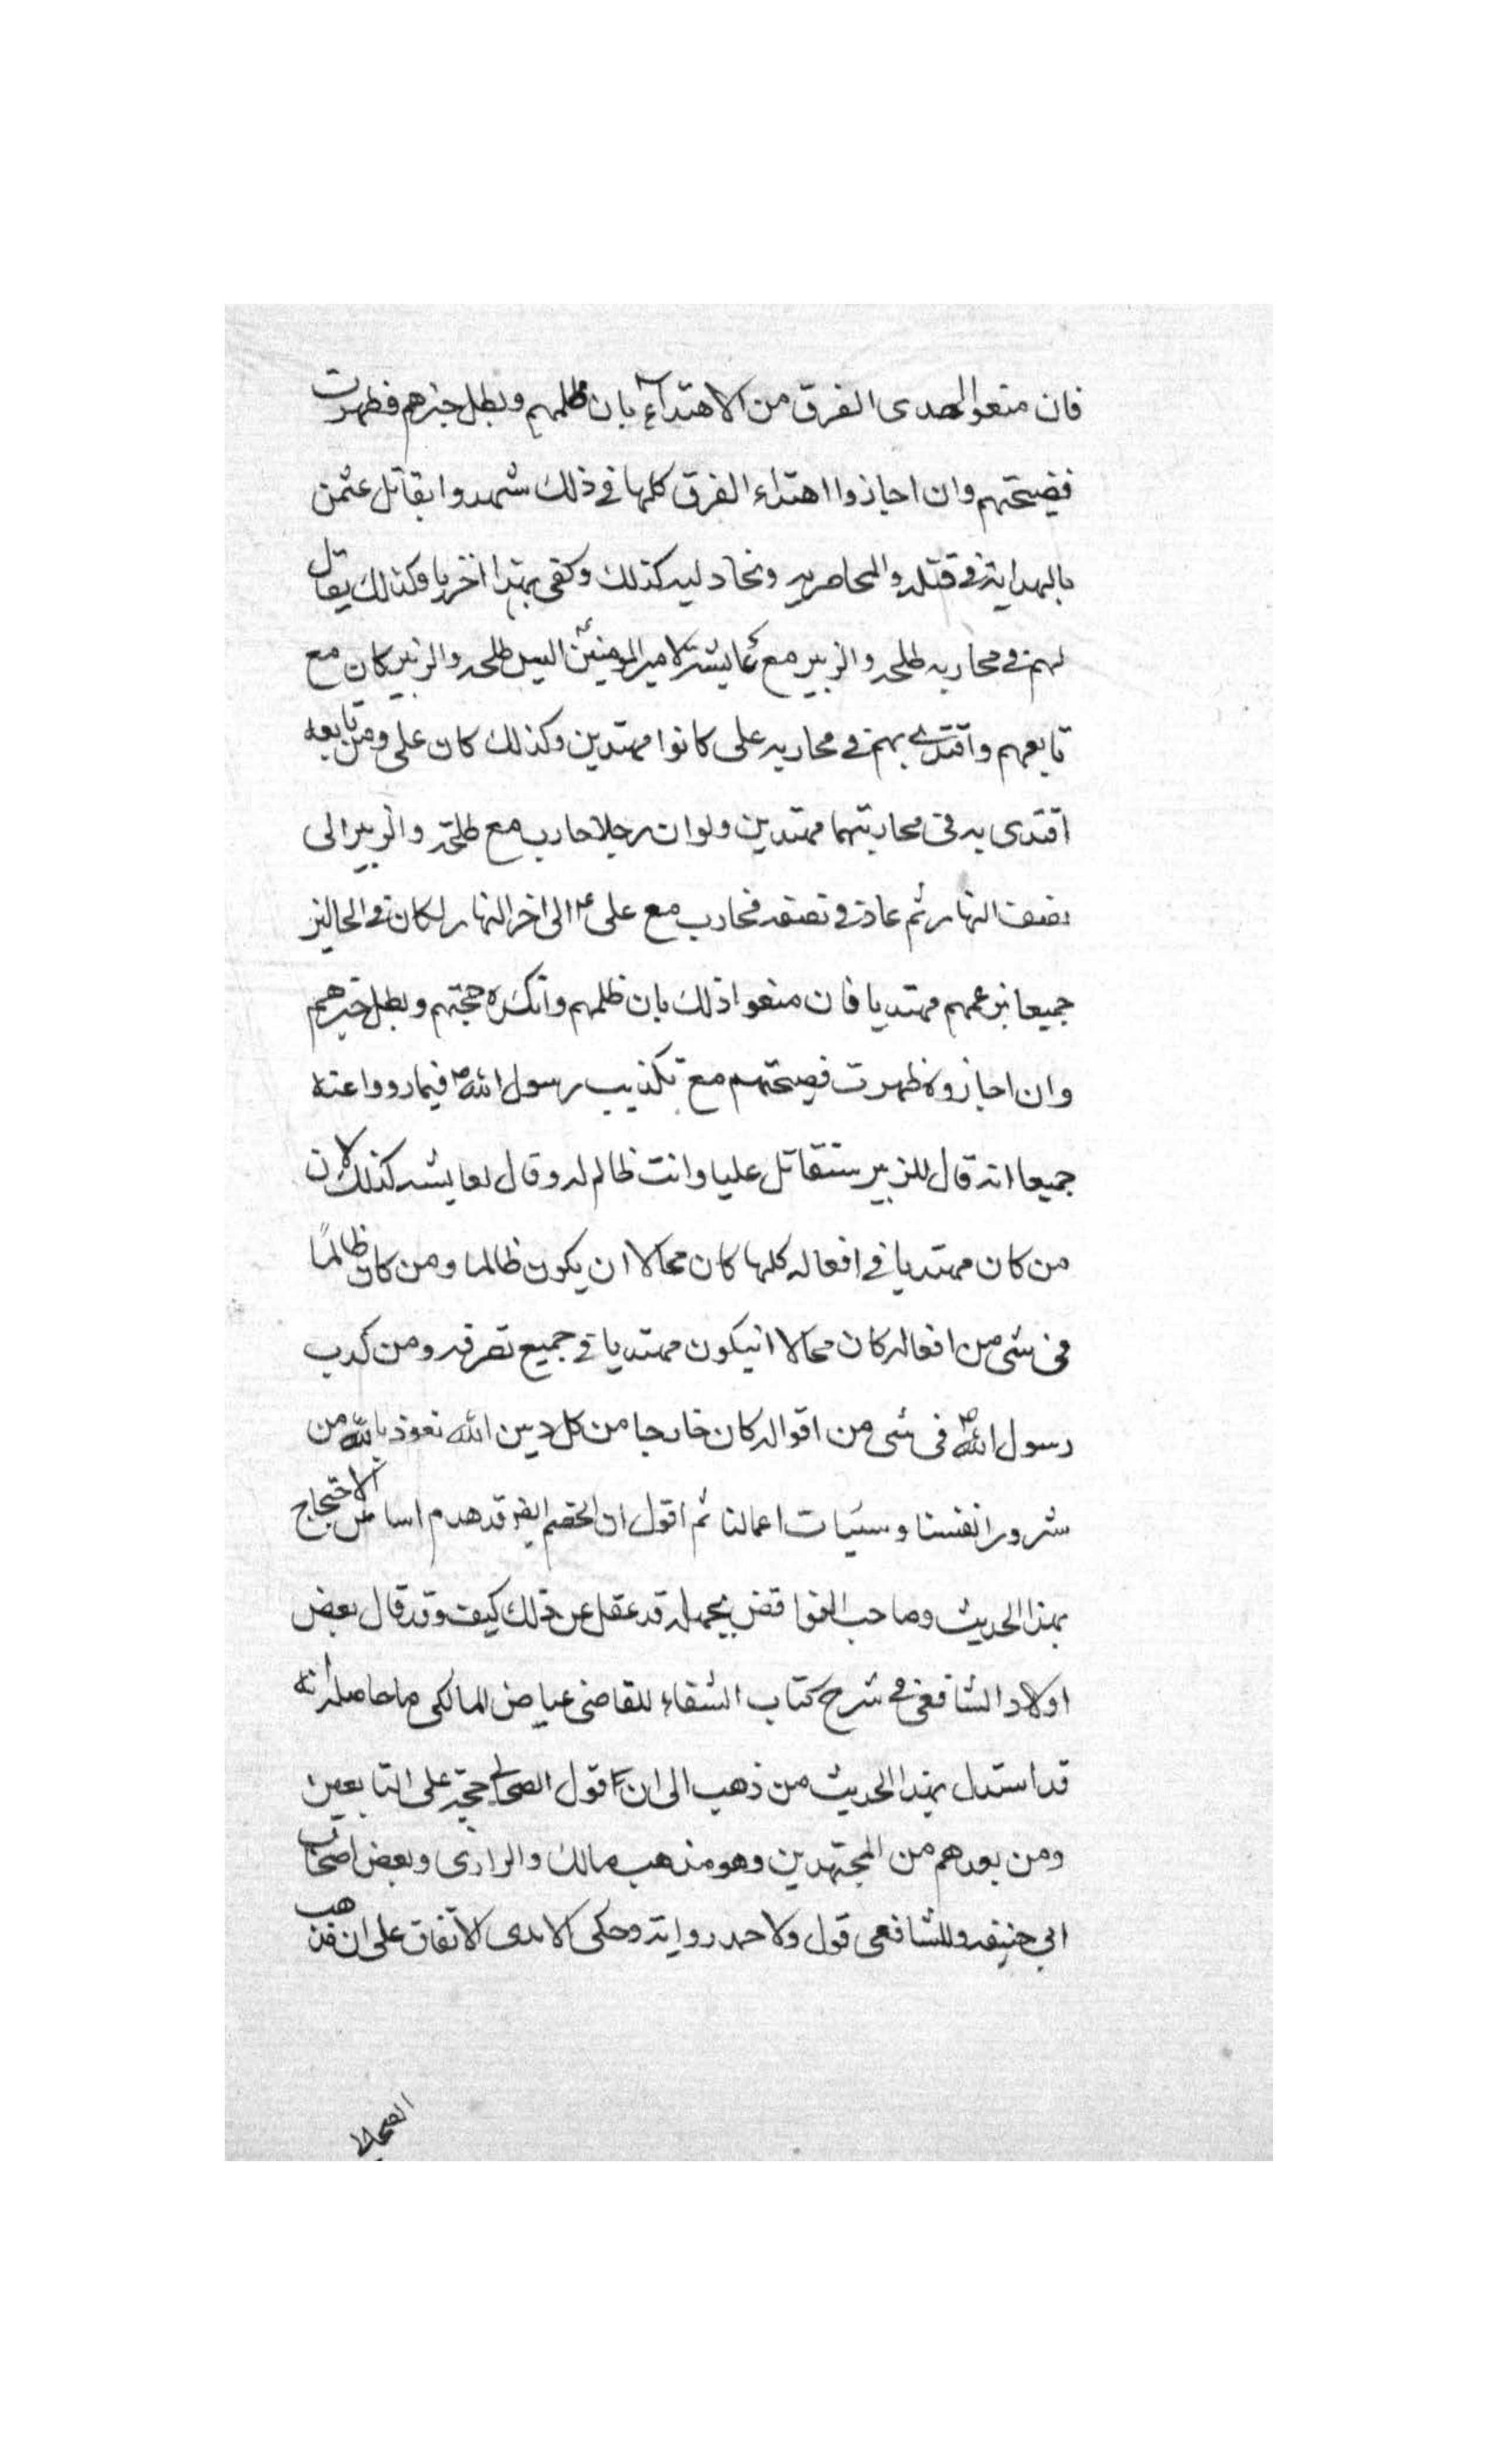 فان منعوا احدى الفرق من الاهتداء بان ظلمهم وبطل خبرهم فظهرت
فضيحتهم وان اجازوا اهتداء الفرق كلها في ذلك شهدوا بقاتل عثمن
بالهداية في قتله والمحاصريه وبخاذليه كذلك وكفى بهذا اخزيا وكذلك يقال
لهم في محاربه طلحه والزبير مع عايشة لامير المومنين اليس طلحه والزبير كان مع
تابعهم واقتدى بهم في محاربه على كانوا مهتدين وكذلك كان على ومن تابعه
اقتدى به في محاربتهما مهتدين ولو ان رجلا حارب مع طلحة والزبير الى
نصف النهار ثم عاد في نصفه فحارب مع على ع الى اخر النهار لكان في الحالين
جميعا بزعمهم مهتديا فان منعوا ذلك بان ظلمهم وانكسره حجتهم وبطل خبرهم
وان اجازوه ظهرت فضيحتهم مع تكذيب رسول الله ص فيما رووا عنه
جميعا انه قال للزبير ستقاتل عليا وانت ظالم له وقال لعايشه كذلك لان
من كان مهتديا في افعاله كلها كان محالا ان يكون ظالما ومن كان ظالمًا
في شى من افعاله كان محالا انيكون مهتديا في جميع تصرفه ومن كذب
رسول الله ص في شى من اقواله كان خارجا من كل دين الله نعوذ بالله من
شرور انفسنا وسيئات اعمالنا ثم اقول ان الخصم ايضا قد هدم اساس الاحتجاج
بهذا الحديث وصاحب النواقض بجهله قد غفل عن ذلك كيف وقد قال بعض
اولاد الشافعى في شرح كتاب الشفاء للقاضى عياض المالكى ما حاصله انه
قد استدل بهذا الحديث من ذهب الى ان قول الصحابي حجة على التابعين
ومن بعدهم من المجتهدين وهو مذهب مالك والرازى وبعض اصحاب
ابي حنيفه وللشافعى قول ولاحمد رواية وحكى الامدى الاتفاق على ان مذهب
الصحابى